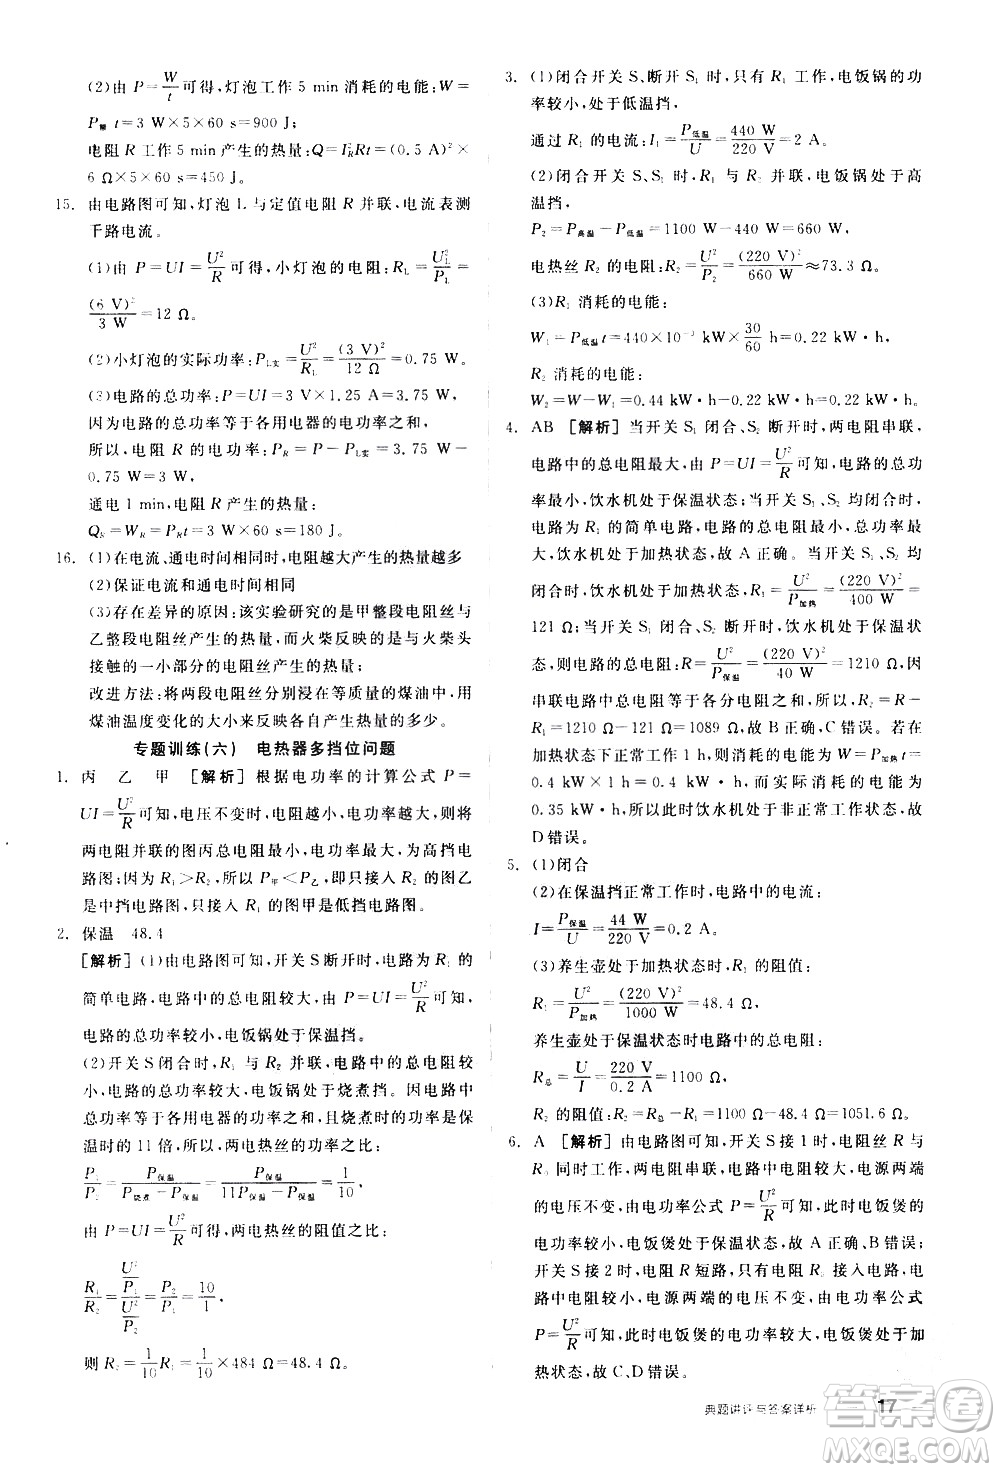 (2)由 P=W/t 可得,灯泡工作 5 min 消耗的电能:W=
P t=3 W×5×60 s=900 J;
电阻 R 工作 5 min 产生的热量:Q=I²_R Rt=(0.5 A)²×
6 Ω×5×60 s=450 J。
15. 由电路图可知,灯泡 L 与定值电阻 R 并联,电流表测
干路电流。
(1)由 P=UI=U²/R 可得,小灯泡的电阻:R_L=U²_L/P_L=
(6 V)²/3 W=12 Ω。
(2)小灯泡的实际功率:P_L实=U²/R_L=(3 V)²/12 Ω=0.75 W。
(3)电路的总功率:P=UI=3 V×1.25 A=3.75 W。
因为电路的总功率等于各用电器的电功率之和,
所以,电阻 R 的电功率:P_R=P-P_L实=3.75 W-
0.75 W=3 W。
通电 1 min,电阻 R 产生的热量:
Q_R=W_R=P_R t=3 W×60 s=180 J。
16. (1)在电流、通电时间相同时,电阻越大产生的热量越多
(2)保证电流和通电时间相同
(3)存在差异的原因:该实验研究的是甲整段电阻丝与
乙整段电阻丝产生的热量,而火柴反映的是与火柴头
接触的一小部分的电阻丝产生的热量;
改进方法:将两段电阻丝分别浸在等质量的煤油中,用
煤油温度变化的大小来反映各自产生热量的多少。
专题训练(六) 电热器多挡位问题
1. 丙 乙 甲 [解析] 根据电功率的计算公式 P=
UI=U²/R可知,电压不变时,电阻越小,电功率越大,则将
两电阻并联的图丙总电阻最小,电功率最大,为高挡电
路图;因为 R₁>R₂,所以,P_甲<P_乙,则只接入 R₂ 的图乙
是中挡电路图,只接入 R₁ 的图甲是低挡电路图。
2. 保温 48.4
[解析](1)由电路图可知,开关 S 断开时,电路为 R₁ 的
简单电路,此时电路的总电阻较大,由 P=UI=U²/R可知,
电路的总功率较小,电饭锅处于保温挡。
(2)开关 S 闭合时,R₁ 与 R₂ 并联,电路中的总电阻较
小,电路的总功率较大,电饭锅处于烧煮挡。因电路中
总功率等于各用电器的功率之和,且烧煮时的功率是保
温时的 11 倍,所以,两电热丝的功率之比:
P₁/P₂=P_保温/(P_烧煮-P_保温)=P_保温/(11P_保温-P_保温)=1/10,
由 P=UI=U²/R可得,两电热丝的阻值之比:
R₁/R₂=(U²/P₁)/(U²/P₂)=P₂/P₁=10/1,
则 R₂=1/10 R₁=1/10×484 Ω=48.4 Ω。
3. (1)闭合开关 S、断开 S₁ 时,只有 R₁ 工作,电饭锅的功
率较小,处于低温挡,
通过 R₁ 的电流:I₁=P_低温/U=440 W/220 V=2 A。
(2)闭合开关 S、S₁ 时,R₁ 与 R₂ 并联,电饭锅处于高
温挡,
P₂=P_高温-P_低温=1100 W-440 W=660 W,
电热丝 R₂ 的电阻:R₂=U²/P₂=(220 V)²/660 W≈73.3 Ω。
(3)R₁ 消耗的电能:
W₁=P_低温t=440×10⁻³ kW×30/60 h=0.22 kW·h,
R₂ 消耗的电能:
W₂=W-W₁=0.44 kW·h-0.22 kW·h=0.22 kW·h。
4. AB [解析] 当开关 S₁ 闭合、S₂ 断开时,两电阻串联,
电路中的总电阻最大,由 P=UI=U²/R可知,电路的总功
率最小,饮水机处于保温状态;当开关 S₁、S₂ 均闭合时,
电路为 R₁ 的简单电路,电路的总电阻最小,总功率最
大,饮水机处于加热状态,故 A 正确。当开关 S₁、S₂ 均
闭合时,饮水机处于加热状态,R₁=U²/P_加热=(220 V)²/400 W=
121 Ω;当开关 S₁ 闭合、S₂ 断开时,饮水机处于保温状
态,则电路的总电阻:R=U²/P_保温=(220 V)²/40 W=1210 Ω,因
串联电路中总电阻等于各分电阻之和,所以,R₂=R-
R₁=1210 Ω-121 Ω=1089 Ω,故 B 正确、C 错误。若在
加热状态下,正常工作 1 h,消耗的电能为 W=P_加热t=
0.4 kW×1 h=0.4 kW·h,而实际消耗的电能为
0.35 kW·h,所以此时饮水机处于非正常工作状态,故
D 错误。
5. (1)闭合
(2)在保温挡正常工作时,电路中的电流:
I=P_保温/U=44 W/220 V=0.2 A。
(3)养生壶处于加热状态时,R₁ 的阻值:
R₁=U²/P_加热=(220 V)²/1000 W=48.4 Ω,
养生壶处于保温状态时电路的总电阻:
R_总=U/I=220 V/0.2 A=1100 Ω,
R₂ 的阻值:R₂=R_总-R₁=1100 Ω-48.4 Ω=1051.6 Ω。
6. A [解析] 由电路图可知,开关 S 接 1 时,电阻丝 R 与
R₀ 同时工作,两电阻串联,电路中电阻较大,电源两端
的电压不变,由电功率公式 P=U²/R可知,此时电饭煲的
电功率较小,电饭煲处于保温状态,故 A 正确、B 错误;
开关 S 接 2 时,电阻 R 短路,只有电阻 R₀ 接入电路,电
路中电阻较小,电源两端的电压不变,由电功率公式
P=U²/R可知,此时电饭煲的电功率较大,电饭煲处于加
热状态,故 C、D 错误。
典题讲评与答案详析 17
答案圈
MXQE.COM